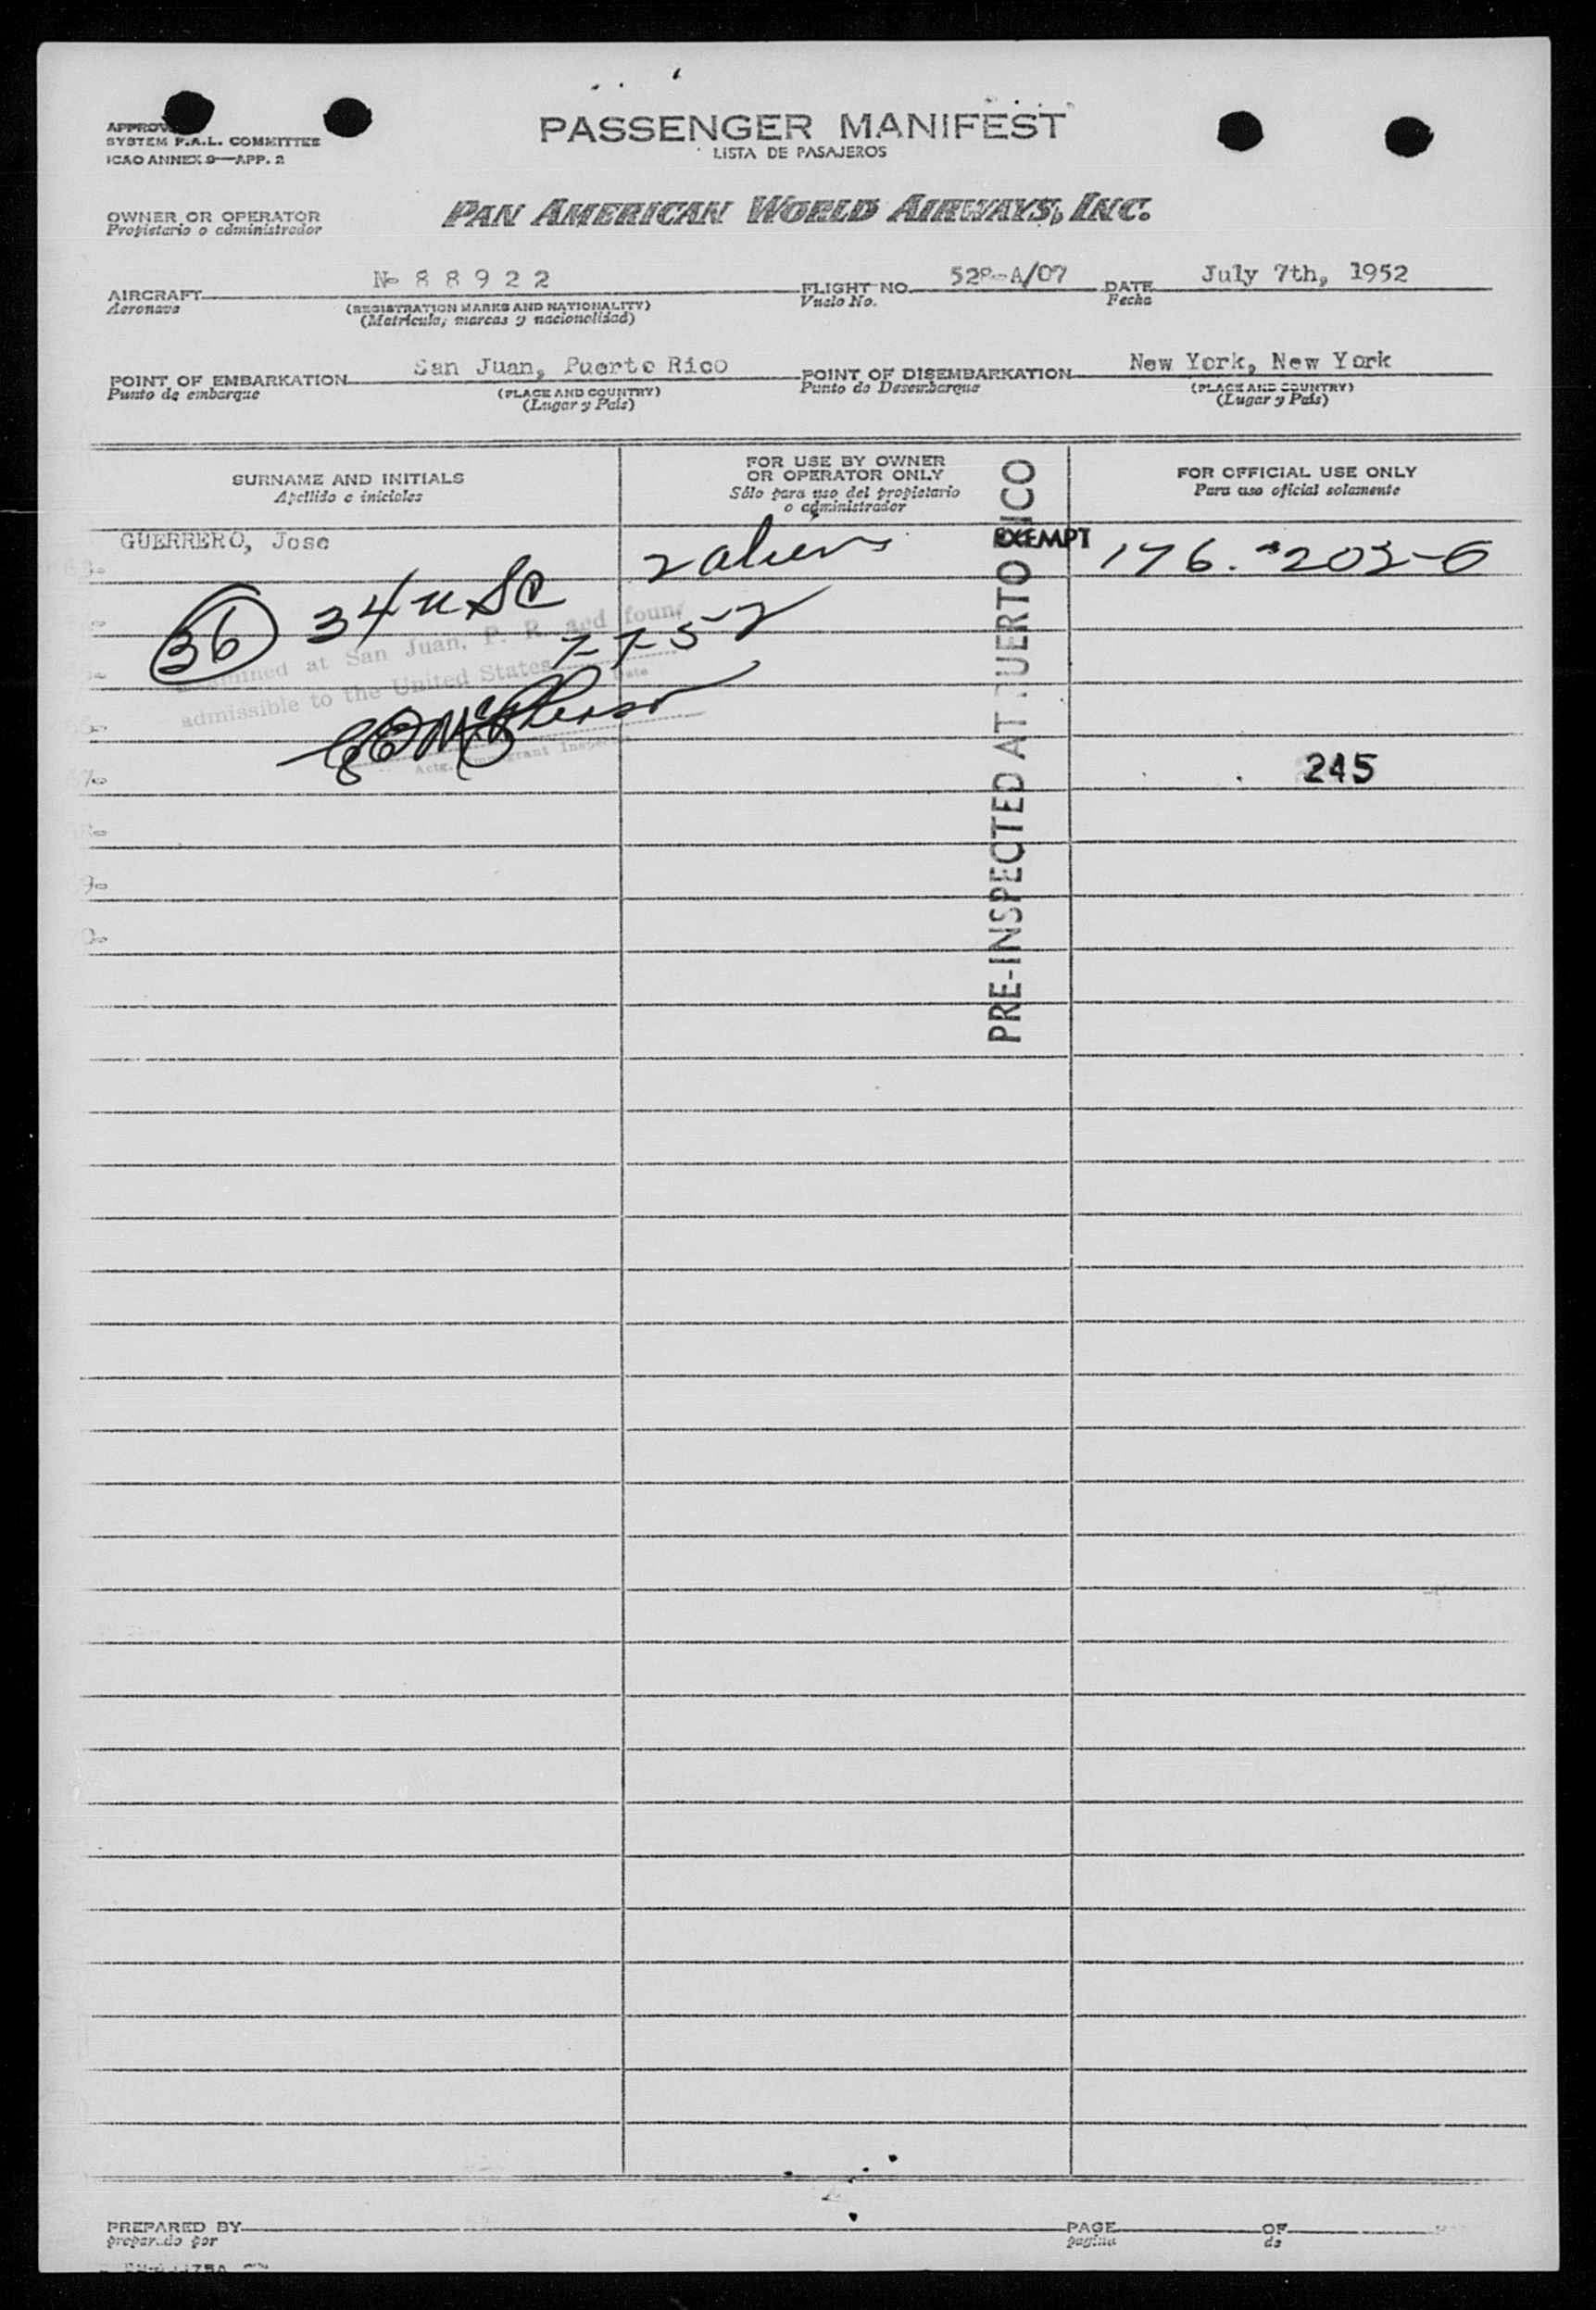 PASSENGER MANIFEST
LISTA DE PASAJEROS
SYSTEM F.A.L. COMMITTEE
ICAO ANNEX 9—APP. 2
OWNER OR OPERATOR
Propietario o administrador
PAN AMERICAN WORLD AIRWAYS, INC.
AIRCRAFT N-88922 FLIGHT NO. DATE July 7th, 1952
Aeronave (REGISTRATION MARKS AND NATIONALITY) Vuelo No. Fecha
(Matrícula, marcas y nacionalidad)
POINT OF EMBARKATION San Juan, Puerto Rico POINT OF DISEMBARKATION New York, New York
Punto de embarque (PLACE AND COUNTRY) Punto de Desembarque (PLACE AND COUNTRY)
(Lugar y País) (Lugar y País)
SURNAME AND INITIALS
Apellido e iniciales
FOR USE BY OWNER
OR OPERATOR ONLY
Sólo para uso del propietario
o administrador
FOR OFFICIAL USE ONLY
Para uso oficial solamente
GUERRERO, Jose
2 aliens
EXEMPT
176.
36
34 USC
at San Juan, P. R. and found
admissible to the United States
7-7-52
Date
PRE-INSPECTED AT PUERTO RICO
245
PREPARED BY
preparado por
PAGE OF
pagina de